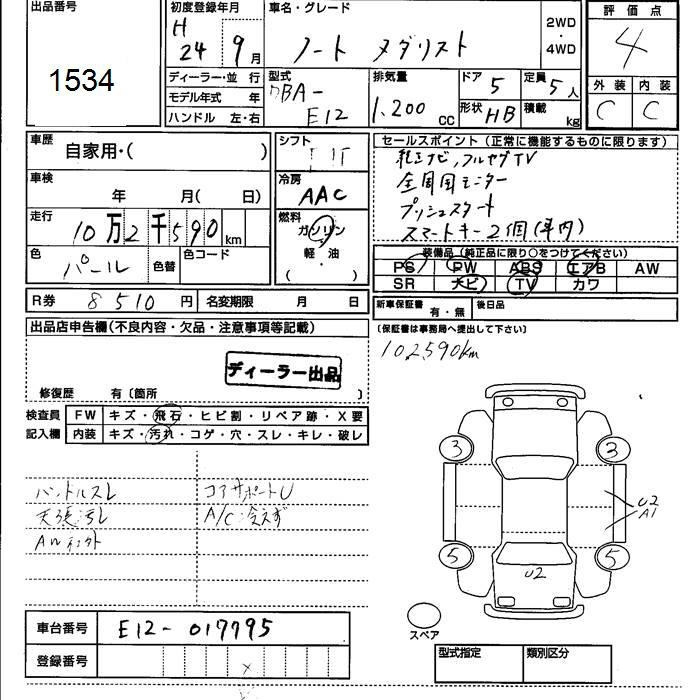 出品番号
1534
初度登録年月
H
24 9月
車名・グレード
ノート メダリスト
2WD
・
4WD
評価点
4
外装 内装
C C
ディーラー・並行
モデル年式 年
ハンドル 左・右
型式
DBA-
E12
排気量
1,200 cc
ドア 5
形状 HB
定員 5人
積載 kg
車歴
自家用・( )
車検
年 月( 日)
走行
10万2千590km
色
パール
色替
色コード
シフト
冷房
AAC
燃料
ガソリン
軽・油
( )
セールスポイント(正常に機能するものに限ります)
純正ナビ,フルセグTV
全周囲モニター
プッシュスタート
スマートキー2個(車内)
装備品(純正品に限り○をつけてください)
PS PW ABS エアB AW
SR ナビ TV カワ
R券 8510円 名変期限 月 日
新車保証書 有・無 後日品
(保証書は事務局へ提出して下さい)
102,590km
出品店申告欄(不良内容・欠品・注意事項等記載)
ディーラー出品
修復歴 有〔箇所 〕
検査員
記入欄
FW キズ・飛石・ヒビ割・リペア跡・X要
内装 キズ・汚れ・コゲ・穴・スレ・キレ・破レ
ハンドルスレ コアサポートU
天張汚レ A/C冷えず
3 3
U2
A1
5 5
U2
スペア
車台番号 E12-017795
登録番号
型式指定 類別区分